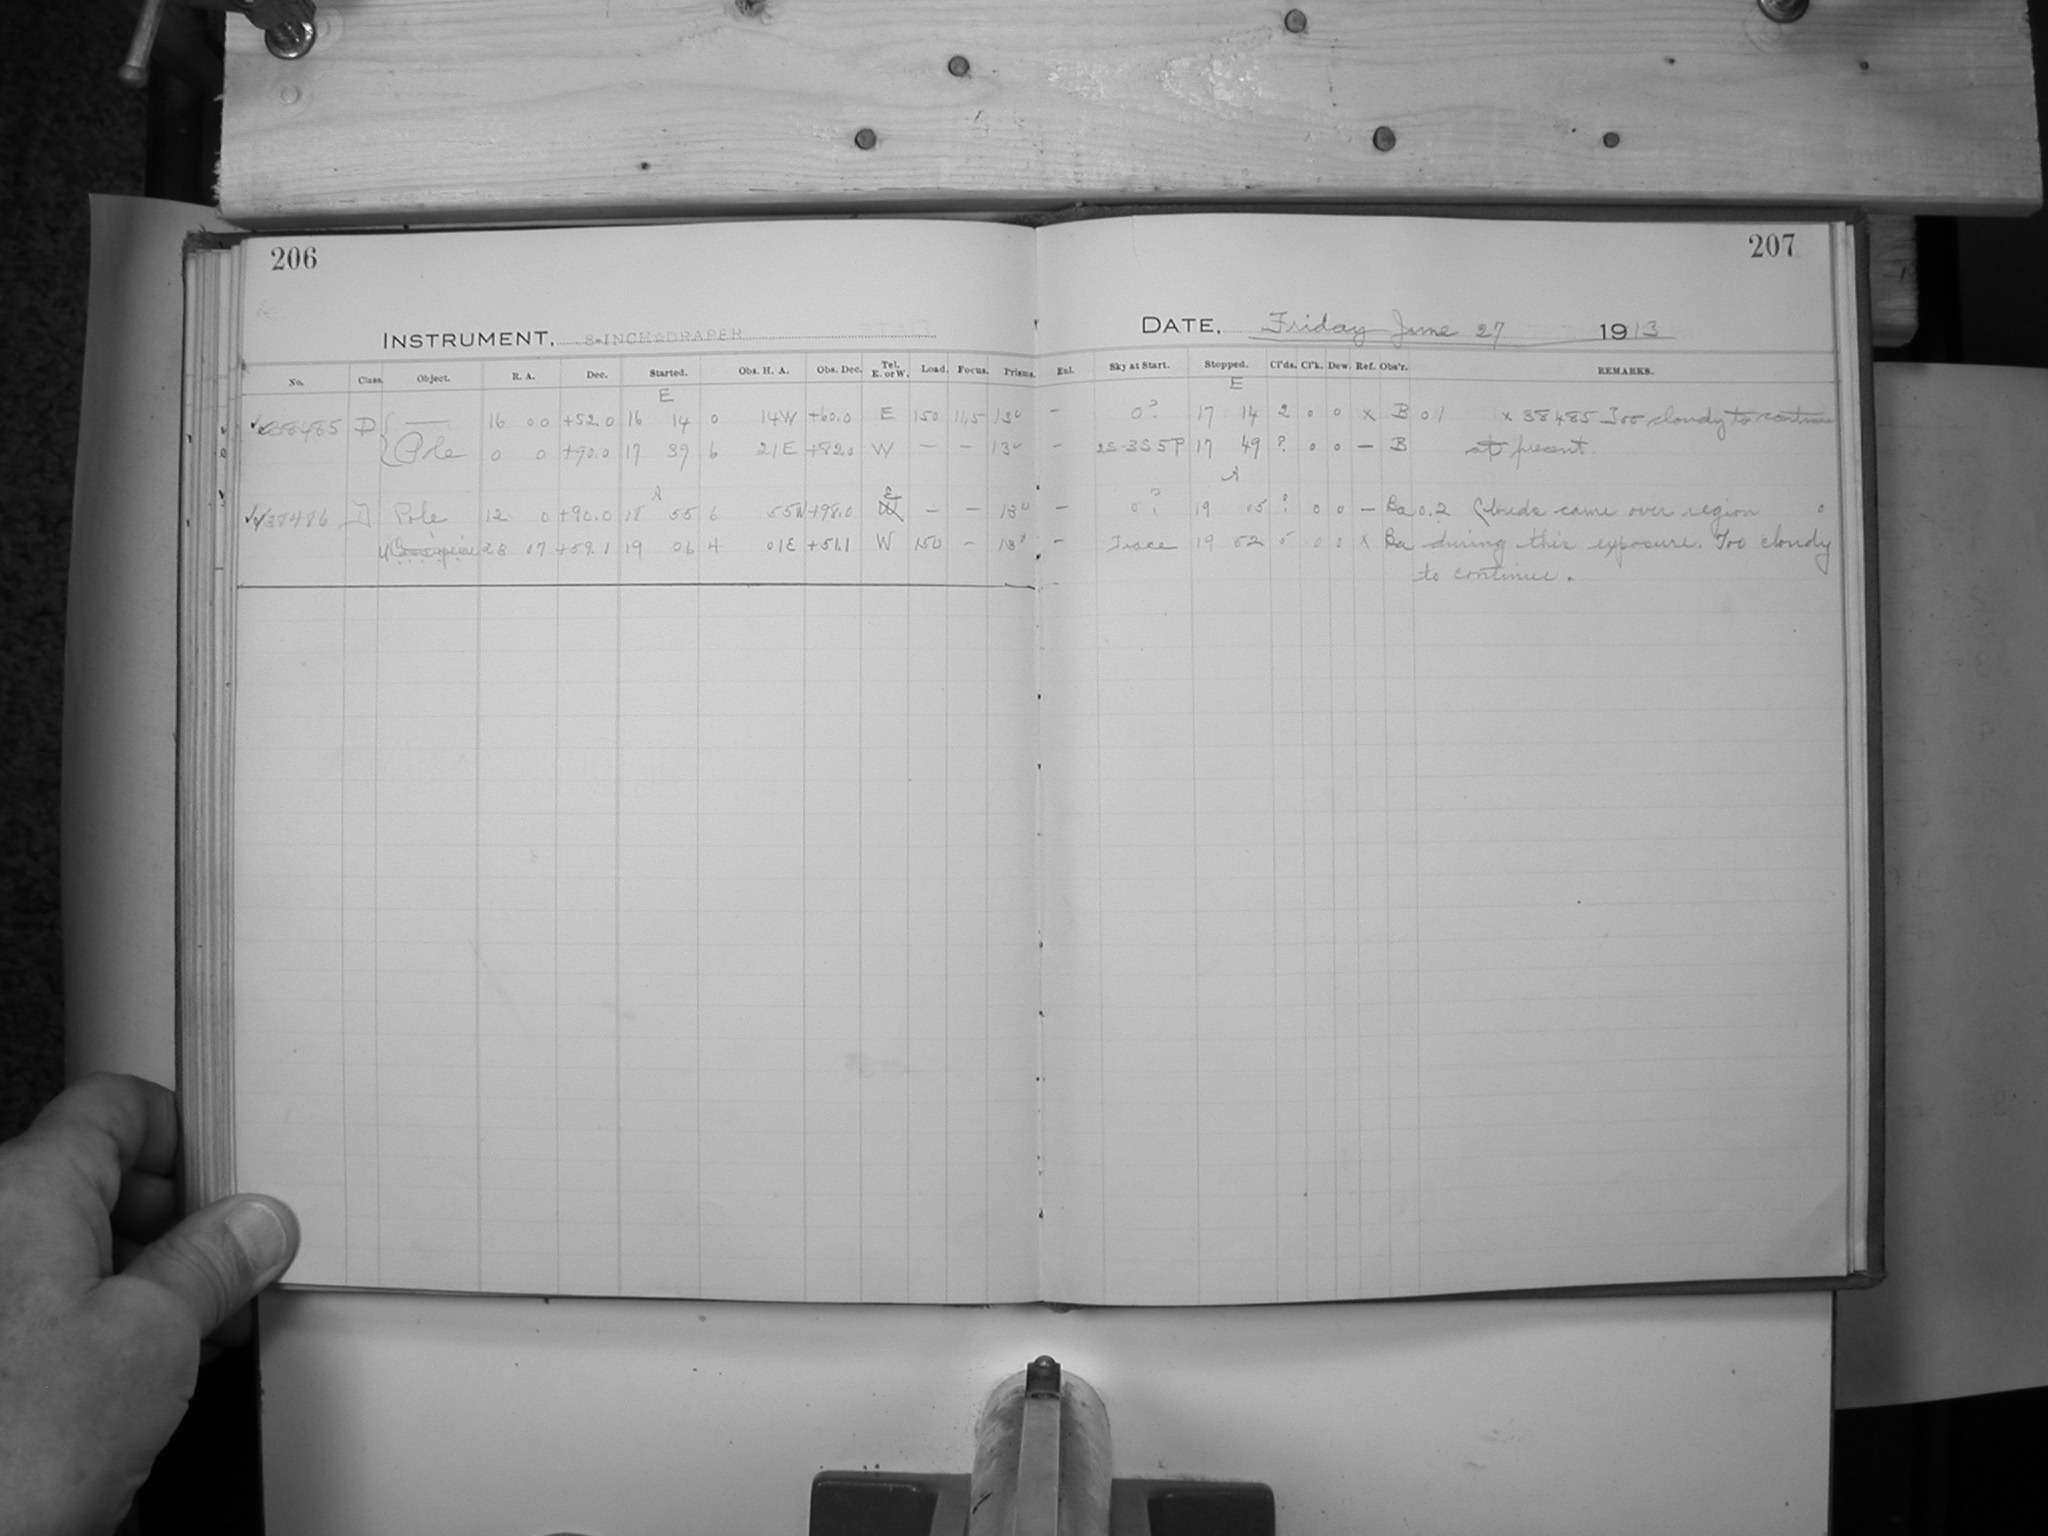 206
207
INSTRUMENT, 8-INCH DRAPER
DATE, Friday June 27 1913
No. Class. Object. R. A. Dec. Started. Obs. H. A. Obs. Dec. Tel. E. or W. Load. Focus. Prisms. Enl. Sky at Start. Stopped. Cl'ds. Cl'k. Dew. Ref. Obs'r. REMARKS.
E E
38485 D — 16 00 +52.0 16 14 0 14W +60.0 E 150 11.5 13 – 0? 17 14 2 0 0 x B 0 1 x 38485 Too cloudy to continue
Pole 0 0 +90.0 17 39 6 21E +82.0 W – – 13 – 17 49 ? 0 0 – B at present.
A A
E
38486 D Pole 12 0 +90.0 18 55 6 55W +98.0 W – – 13 – 0? 19 05 ? 0 0 – Ba 0.2 Clouds came over region
Cassiopeiae 23 07 +59.1 19 06 4 01E +51.1 W 150 – 13 – Trace 19 52 5 0 0 x Ba during this exposure. Too cloudy
to continue.